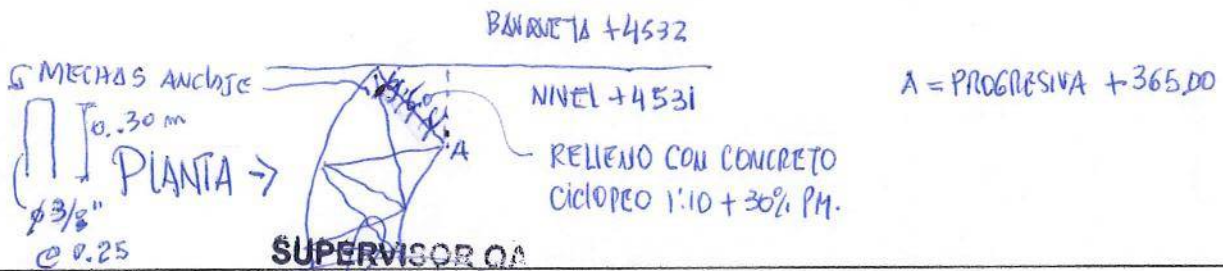 BANQUETA +4532
MECHAS ANCLAJE
NIVEL +4531
A = PROGRESIVA + 365,00
0..30 m
PLANTA →
A
RELLENO CON CONCRETO
CICLOPEO 1:10 + 30% PM.
ϕ 3/8"
@ 0.25
SUPERVISOR QA